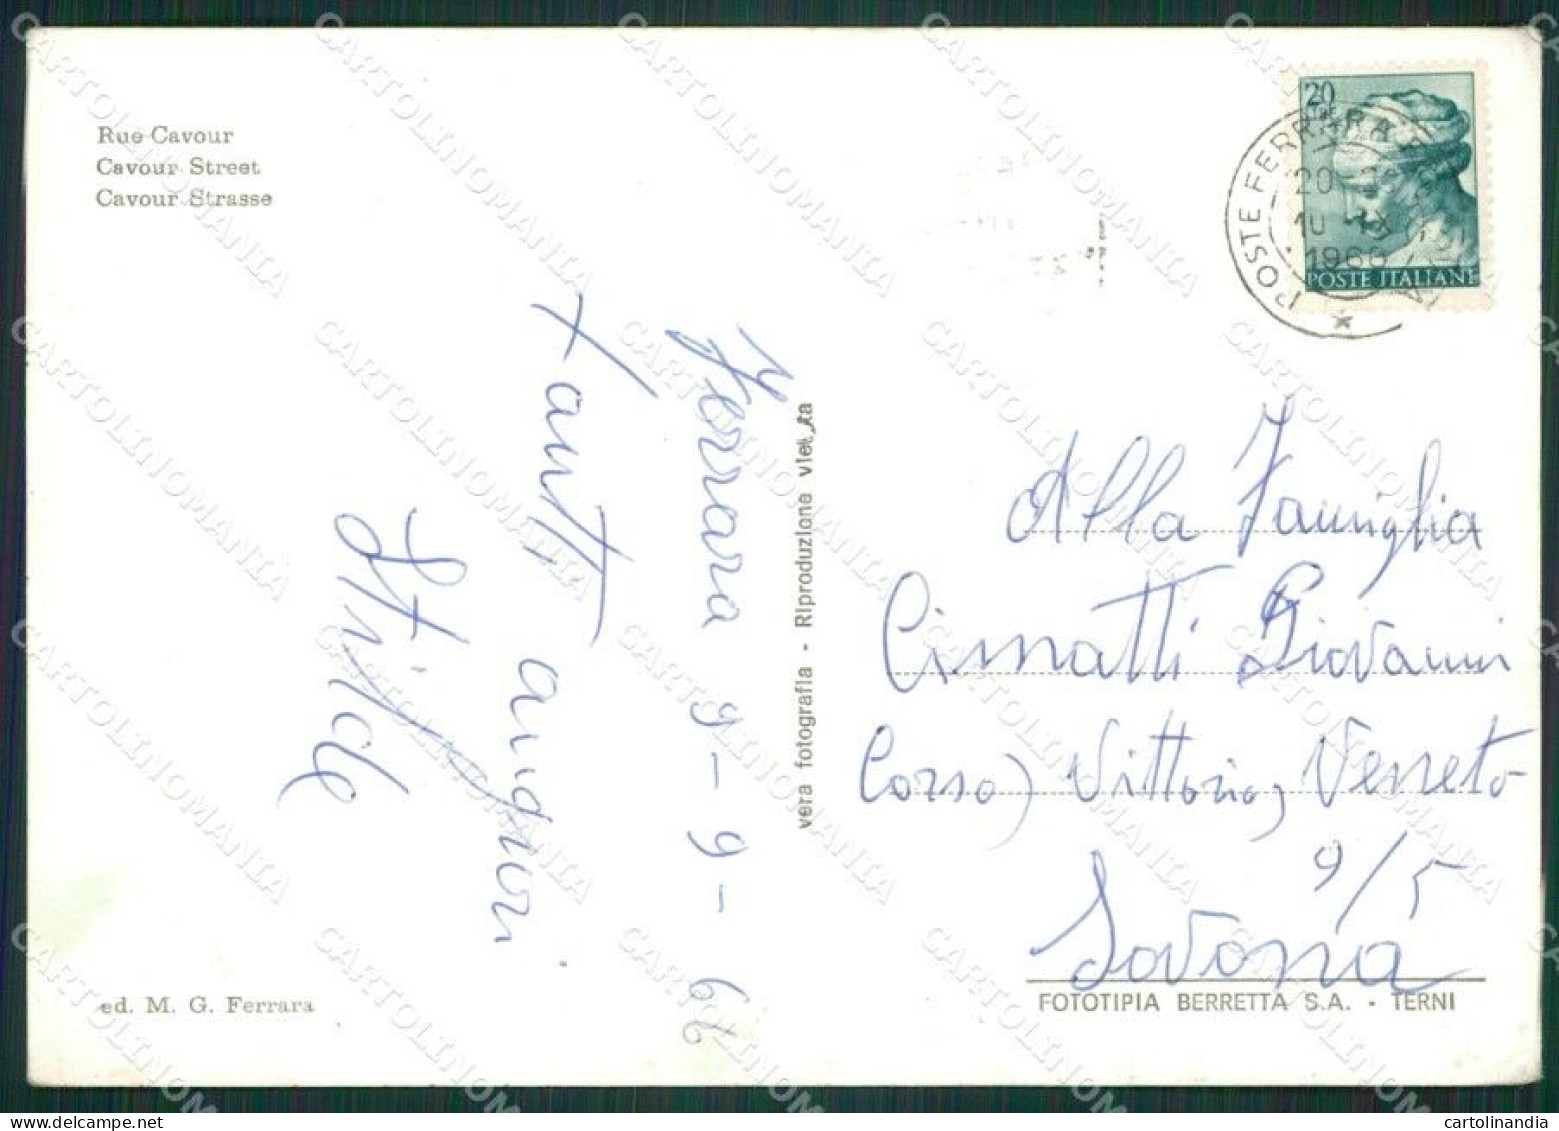 Rue Cavour
Cavour Street
Cavour Strasse
20
LIRE
POSTE ITALIANE
POSTE FERRARA
20
10
1966
Ferrara 9-9-66
Tanti auguri
Hilde
vera fotografia - Riproduzione vietata
Alla Famiglia
Cimatti Giovanni
Corso Vittorio Veneto
9/5
Savona
ed. M. G. Ferrara
FOTOTIPIA BERRETTA S.A. - TERNI
CARTOLINOMANIA
cartolinandia